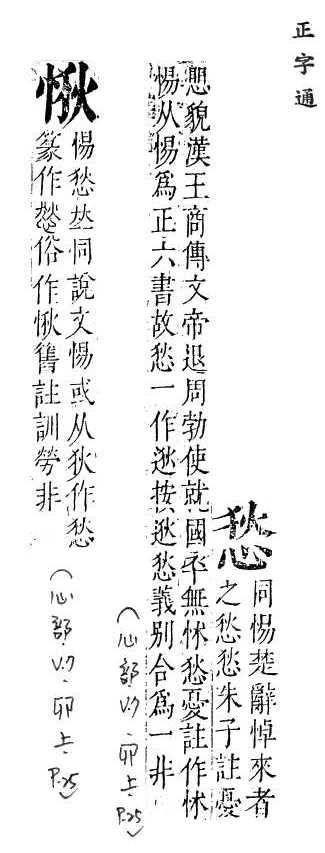 正字通
悐
同惕楚辭悼來者
之悐悐朱子註憂
愳貌漢王商傳文帝退周勃使就國卒無怵悐憂註作怵
惕从惕爲正六書故悐一作逖按逖悐義別合爲一非
(心部 V7、卯上、P.25)
⿰忄狄
惕悐𠀤同說文惕或从狄作悐
篆作俗作⿰忄狄舊註訓勞非
(心部 V7、卯上、P.25)